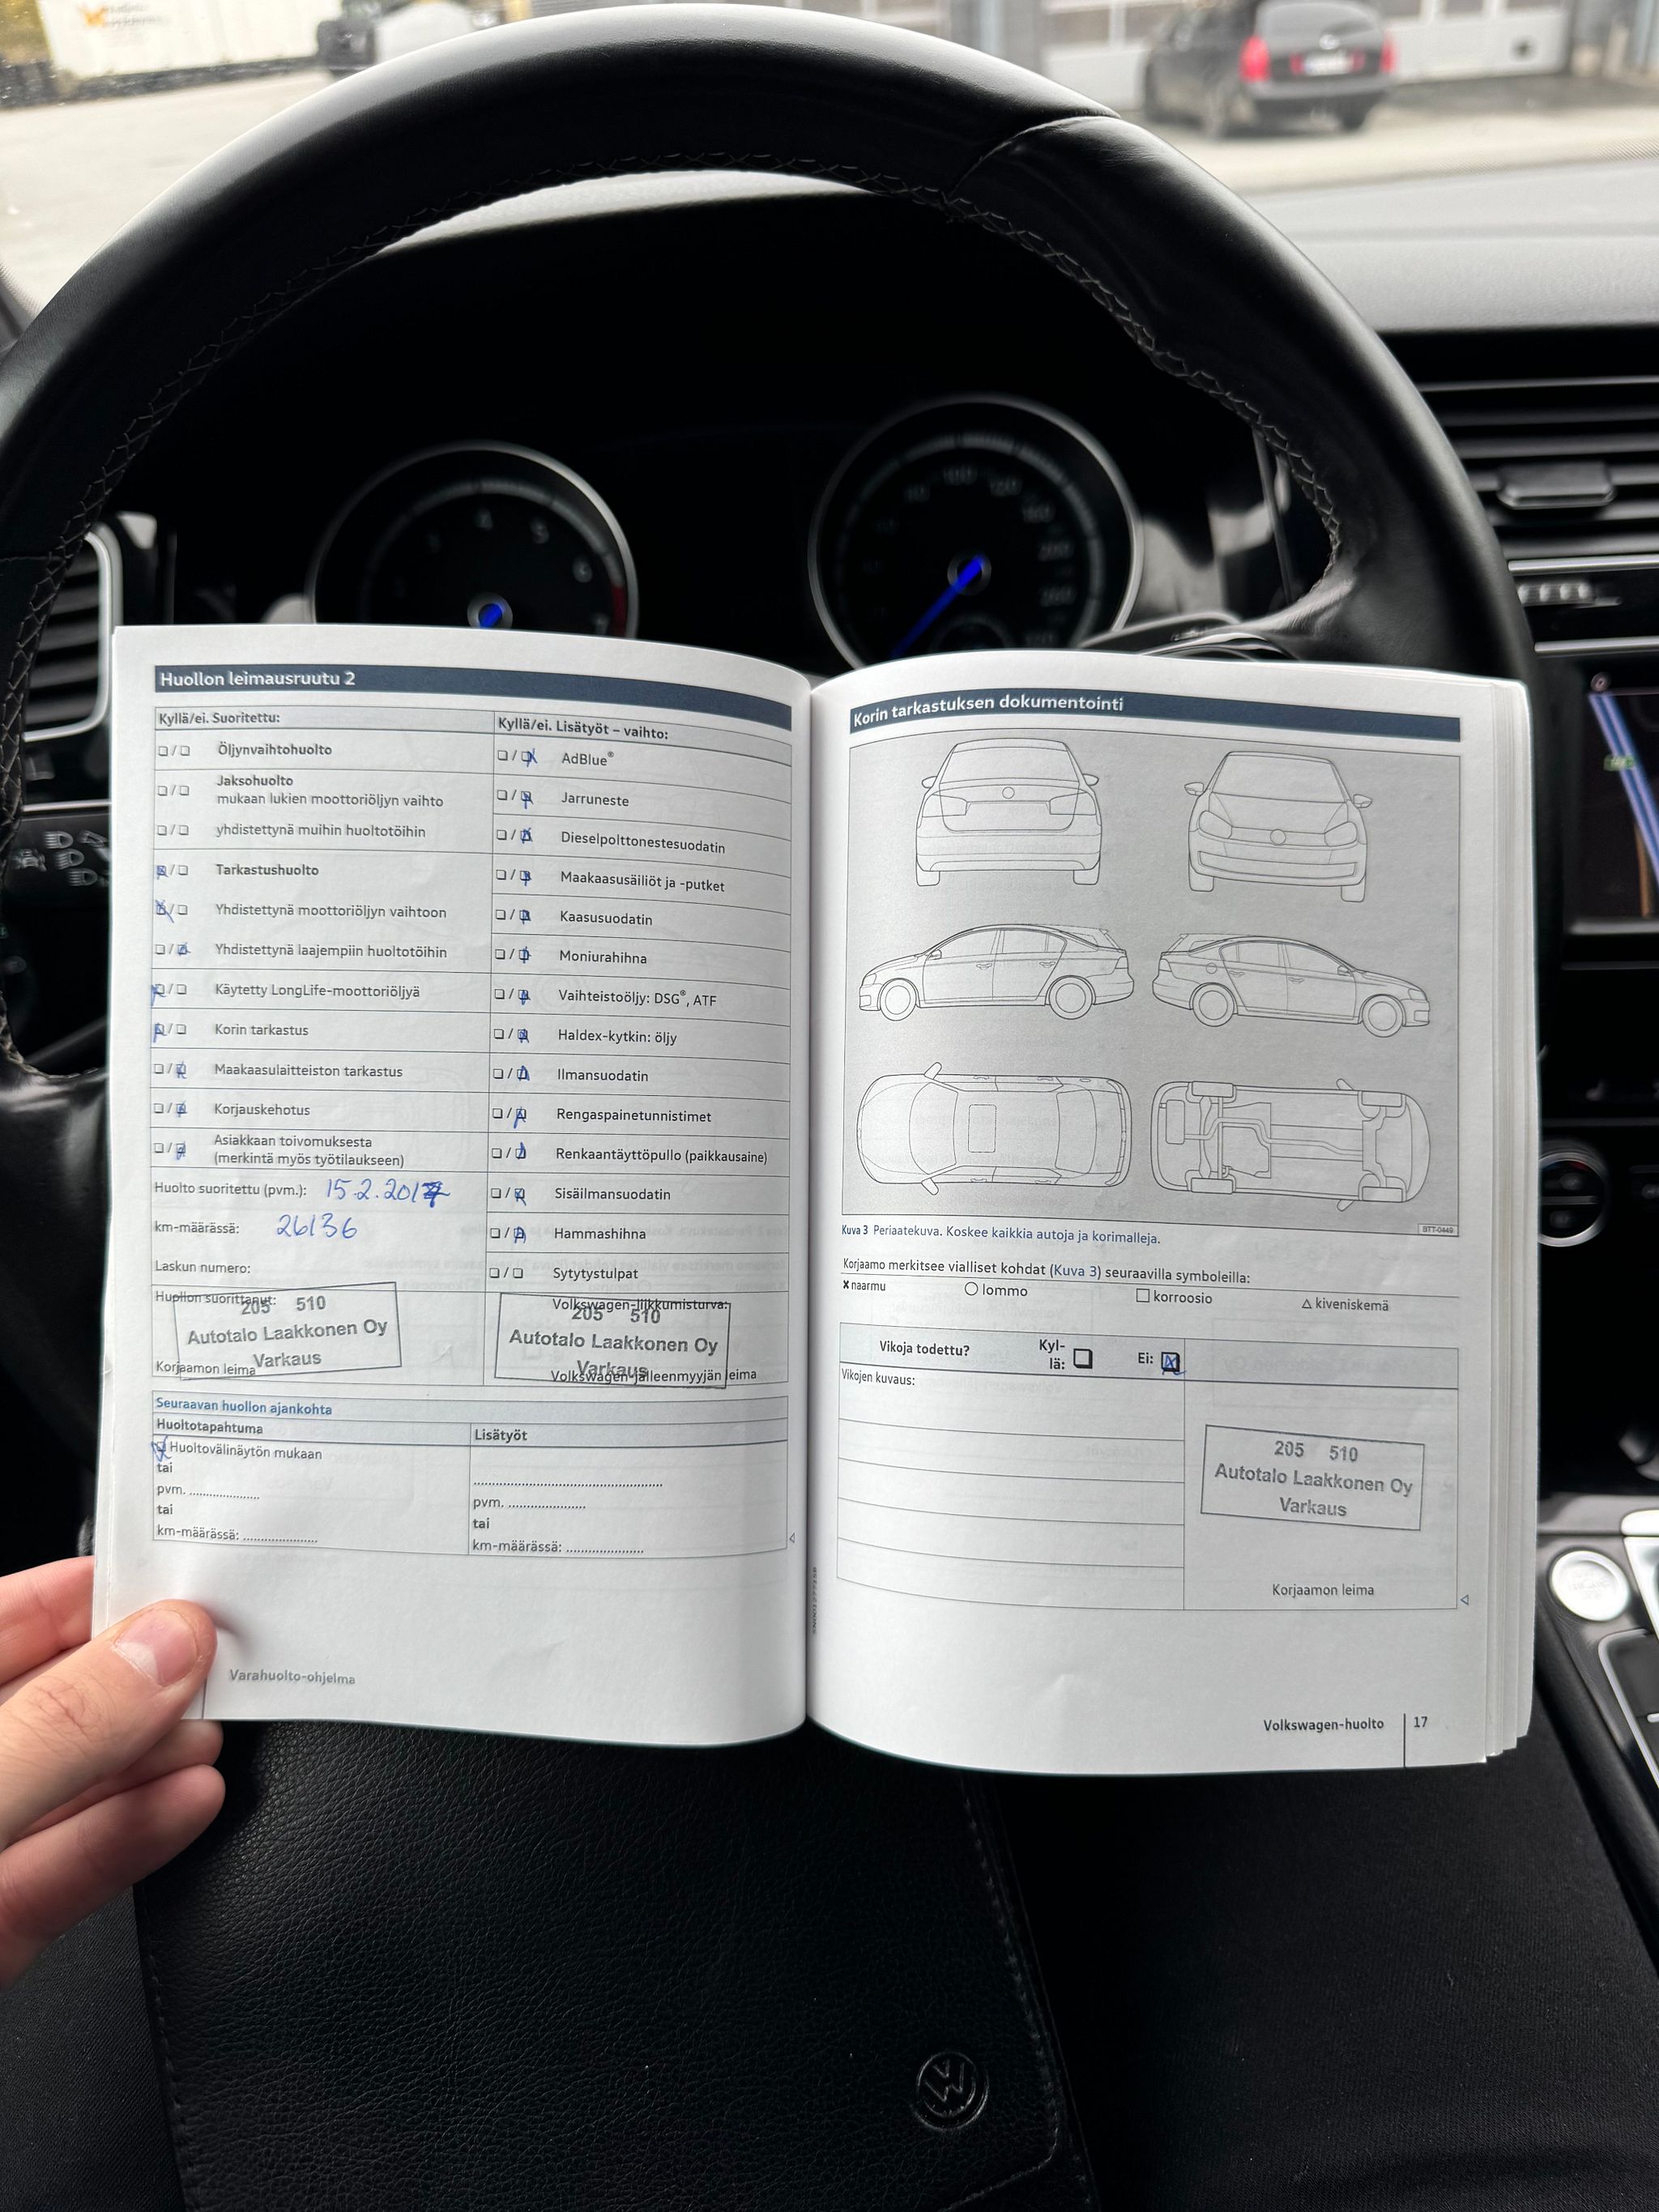 Huollon leimausruutu 2
Kyllä/ei. Suoritettu:
❏ / ❏ Öljynvaihtohuolto
❏ / ❏ Jaksohuolto
mukaan lukien moottoriöljyn vaihto
❏ / ❏ yhdistettynä muihin huoltotöihin
❏ / ❏ Tarkastushuolto
❏ / ❏ Yhdistettynä moottoriöljyn vaihtoon
❏ / ❏ Yhdistettynä laajempiin huoltotöihin
❏ / ❏ Käytetty LongLife-moottoriöljyä
❏ / ❏ Korin tarkastus
❏ / ❏ Maakaasulaitteiston tarkastus
❏ / ❏ Korjauskehotus
❏ / ❏ Asiakkaan toivomuksesta
(merkintä myös työtilaukseen)
Huolto suoritettu (pvm.): 15.2.2017
km-määrässä: 26136
Laskun numero:
Huollon suorittanut:
205 510
Autotalo Laakkonen Oy
Varkaus
Korjaamon leima
Kyllä/ei. Lisätyöt – vaihto:
❏ / ❏ AdBlue®
❏ / ❏ Jarruneste
❏ / ❏ Dieselpolttonestesuodatin
❏ / ❏ Maakaasusäiliöt ja -putket
❏ / ❏ Kaasusuodatin
❏ / ❏ Moniurahihna
❏ / ❏ Vaihteistoöljy: DSG®, ATF
❏ / ❏ Haldex-kytkin: öljy
❏ / ❏ Ilmansuodatin
❏ / ❏ Rengaspainetunnistimet
❏ / ❏ Renkaantäyttöpullo (paikkausaine)
❏ / ❏ Sisäilmansuodatin
❏ / ❏ Hammashihna
❏ / ❏ Sytytystulpat
Volkswagen-liikkumisturva:
205 510
Autotalo Laakkonen Oy
Varkaus
Volkswagen-jälleenmyyjän leima
Seuraavan huollon ajankohta
Huoltotapahtuma
❏ Huoltovälinäytön mukaan
tai
pvm. ....................
tai
km-määrässä: ....................
Lisätyöt
..................................................
pvm. ....................
tai
km-määrässä: ....................
Varahuolto-ohjelma
Korin tarkastuksen dokumentointi
BTT-0449
Kuva 3 Periaatekuva. Koskee kaikkia autoja ja korimalleja.
Korjaamo merkitsee vialliset kohdat (Kuva 3) seuraavilla symboleilla:
× naarmu ○ lommo □ korroosio △ kiveniskemä
Vikoja todettu? Kyl-
lä: ❏ Ei: ❏
Vikojen kuvaus:
205 510
Autotalo Laakkonen Oy
Varkaus
Korjaamon leima
Volkswagen-huolto 17